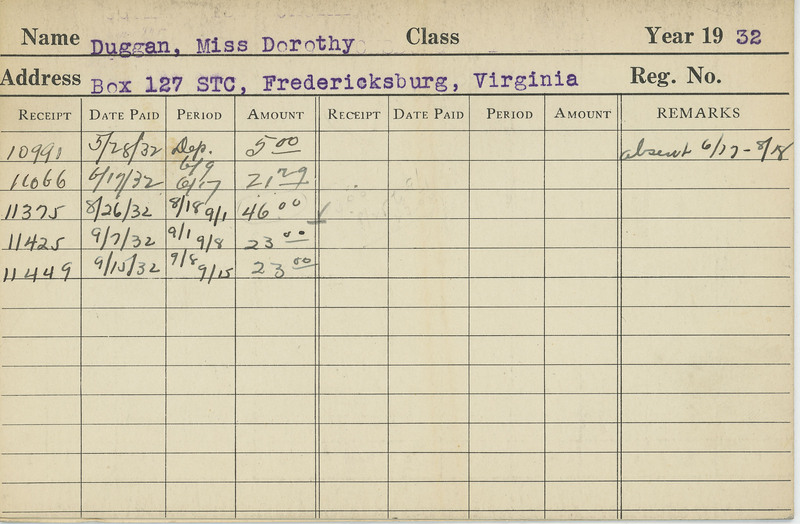 Name Duggan, Miss Dorothy Class Year 19 32
Address Box 127 STC, Fredericksburg, Virginia Reg. No.
RECEIPT DATE PAID PERIOD AMOUNT RECEIPT DATE PAID PERIOD AMOUNT REMARKS
10991 5/28/32 Dep. 5 00 absent 6/17 - 8/18
11066 6/17/32 6/9 6/17 21 29
11375 8/26/32 8/18 9/1 46 00 ✓
11425 9/7/32 9/1 9/8 23 00
11449 9/15/32 9/8 9/15 23 00